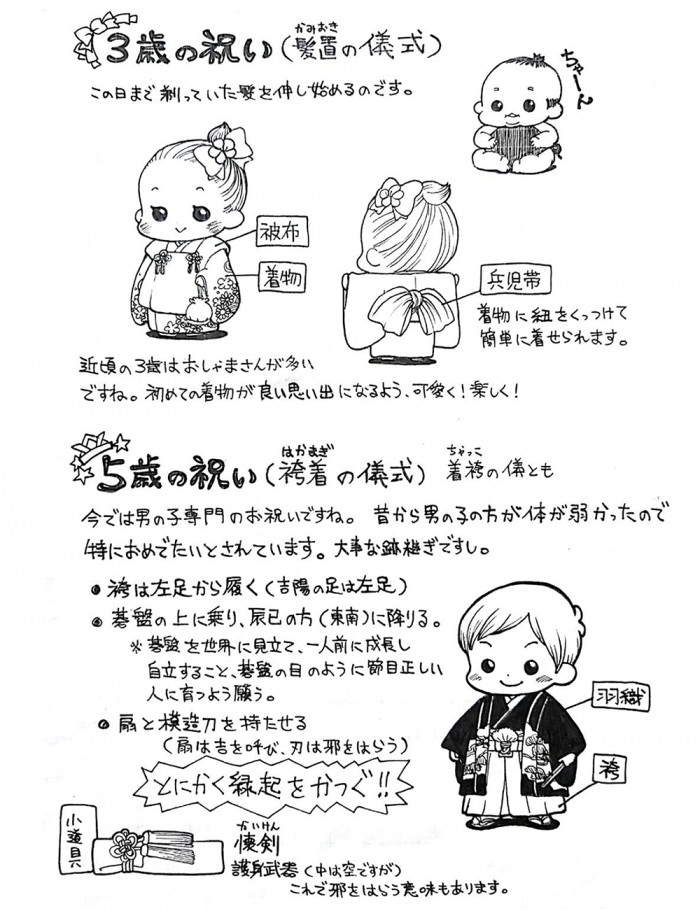 3歳の祝い(髪置の儀式)
かみおき
この日まで剃っていた髪を伸し始めるのです。
ちゃーん
被布
着物
兵児帯
着物に紐をくっつけて
簡単に着せられます。
近頃の3歳はおしゃまさんが多い
ですね。初めての着物が良い思い出になるよう、可愛く!楽しく!
はかまぎ
5歳の祝い(袴着の儀式)
ちゃっこ
着袴の儀とも
今では男の子専門のお祝いですね。昔から男の子の方が体が弱かったので
特におめでたいとされています。大事な跡継ぎですし。
●袴は左足から履く(吉陽の足は左足)
●碁盤の上に乗り、辰巳の方(東南)に降りる。
※碁盤を世界に見立て、一人前に成長し
自立すること、碁盤の目のように節目正しい
人に育つよう願う。
●扇と模造刀を持たせる
(扇は吉を呼び、刃は邪をはらう)
とにかく縁起をかつぐ!!
羽織
袴
小道具
かいけん
懐剣
護身武器(中は空ですが)
これで邪をはらう意味もあります。